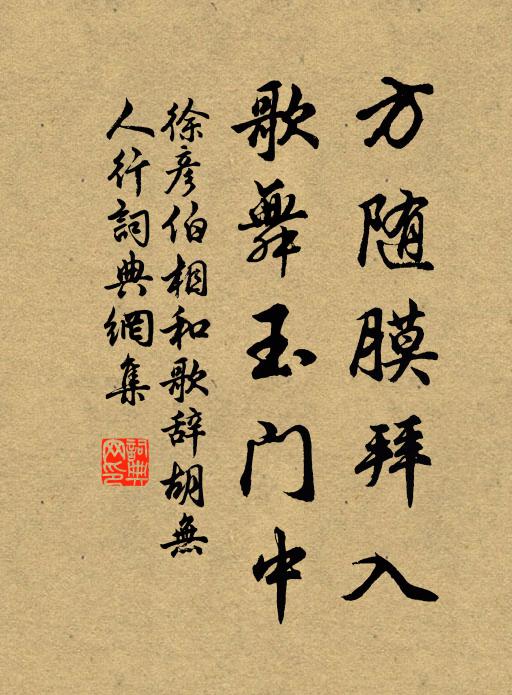 方随膜拜入
歌舞玉门中
徐彦伯相和歌辞胡無
人行詞典網集
詞典网印